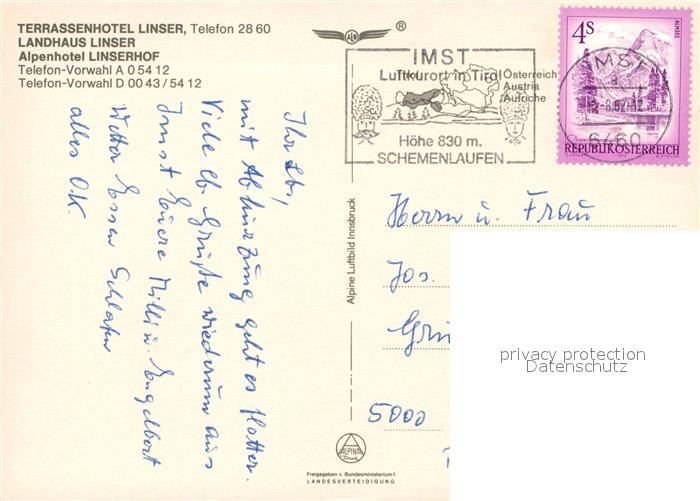 TERRASSENHOTEL LINSER, Telefon 28 60
LANDHAUS LINSER
Alpenhotel LINSERHOF
Telefon-Vorwahl A 0 54 12
Telefon-Vorwahl D 00 43 / 54 12
Ihr Lb,
mit Abkürzung geht es flotter.
Viele lb. Grüße wiederum aus
Imst Euere Milli u. Engelbert
Wetter Essen Schlafen
alles O.K.
®
IMST
Luftkurort in Tirol
Tirol
Österreich
Austria
Autriche
Höhe 830 m.
SCHEMENLAUFEN
4S
ALMSEE
IMST
a
6460
REPUBLIK ÖSTERREICH
Herrn u. Frau
Jos.
5000
Alpine Luftbild Innsbruck
ALPINA
Freigegeben v. Bundesministerium f.
LANDESVERTEIDIGUNG
privacy protection
Datenschutz